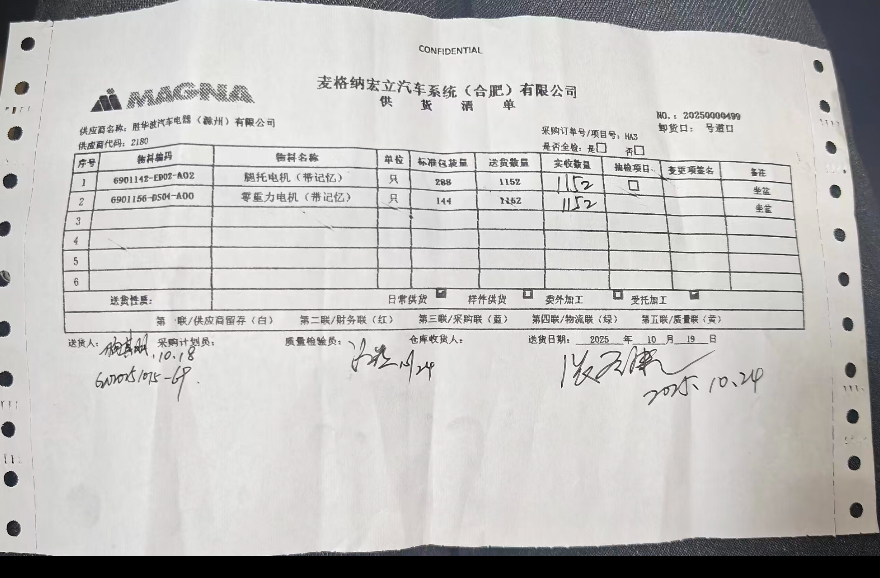 CONFIDENTIAL
MAGNA
麦格纳宏立汽车系统（合肥）有限公司
供 货 清 单
NO.：20250000499
供应商名称：胜华波汽车电器（滁州）有限公司
采购订单号/项目号：HA3
卸货口： 号道口
供应商代码：2180
是否全检：是□ 否□
序号 物料编码 物料名称 单位 标准包装量 送货数量 实收数量 抽检项目 变更项签名 备注
1 6901142-ED02-A02 腿托电机（带记忆） 只 288 1152 1152 □ 坐盆
2 6901156-DS04-A00 零重力电机（带记忆） 只 144 1152 1152 坐盆
3
4
5
6
送货性质： 日常供货 样件供货 委外加工 受托加工
第一联/供应商留存（白） 第二联/财务联（红） 第三联/采购联（蓝） 第四联/物流联（绿） 第五联/质量联（黄）
送货人： 采购计划员： 质量检验员： 仓库收货人： 送货日期： 2025 年 10 月 19 日
10.18
10/24
2025.10.24